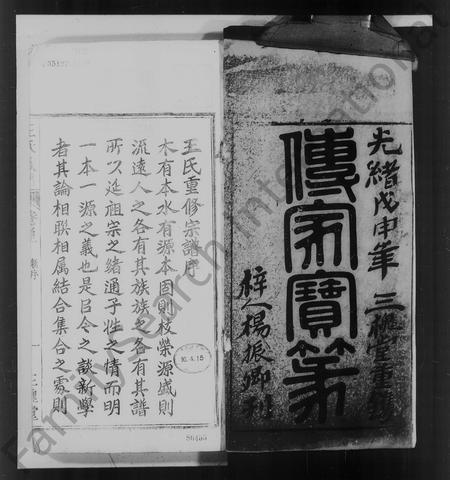 光緒戊申年 三槐堂重鐫
傳家寶笈
梓人楊振卿刊
王氏重修宗譜序
木有本水有源本固則枝榮源盛則
流遠人之各有其族族之各有其譜
所以延祖宗之緒通子姓之情而明
一本一源之義也是故今之談新學
者其論相聯相属結合集合之處則
三槐堂
10.4.15
FamilySearch International